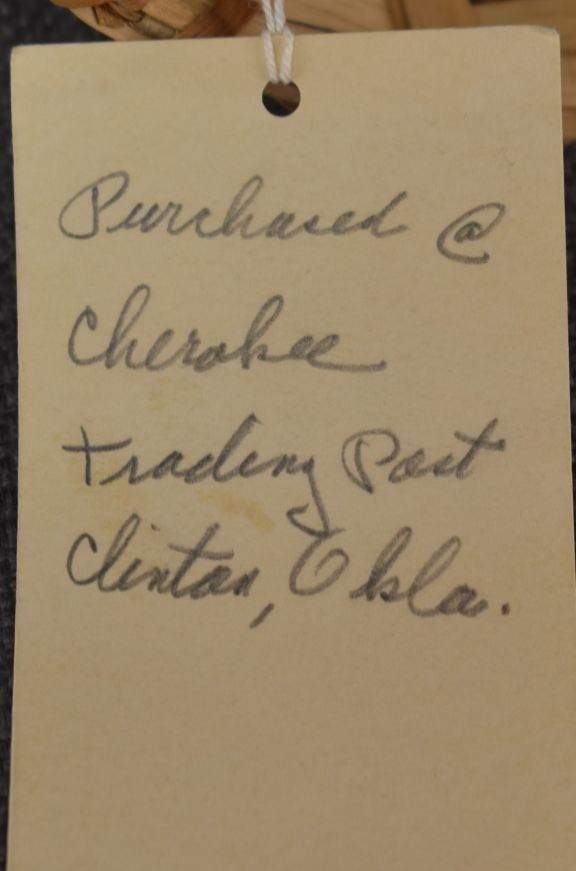 Purchased @
Cherokee
Trading Post
Clinton, Okla.